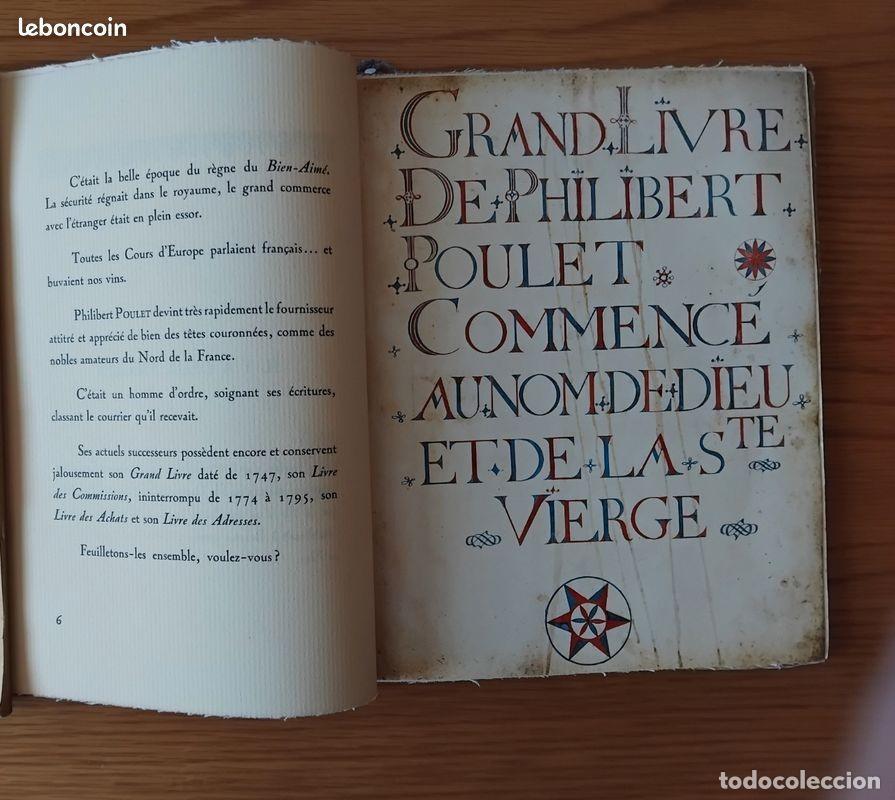 leboncoin
C'était la belle époque du règne du Bien-Aimé.
La sécurité régnait dans le royaume, le grand commerce
avec l'étranger était en plein essor.
Toutes les Cours d'Europe parlaient français... et
buvaient nos vins.
Philibert POULET devint très rapidement le fournisseur
attitré et apprécié de bien des têtes couronnées, comme des
nobles amateurs du Nord de la France.
C'était un homme d'ordre, soignant ses écritures,
classant le courrier qu'il recevait.
Ses actuels successeurs possèdent encore et conservent
jalousement son Grand Livre daté de 1747, son Livre
des Commissions, ininterrompu de 1774 à 1795, son
Livre des Achats et son Livre des Adresses.
Feuilletons-les ensemble, voulez-vous ?
6
GRAND LÏVRE
DE PHÏLÏBERT
POULET
COMMENCÉ
AU NOM DE DÏEU
ET DE LA STE
VÏERGE
todocoleccion